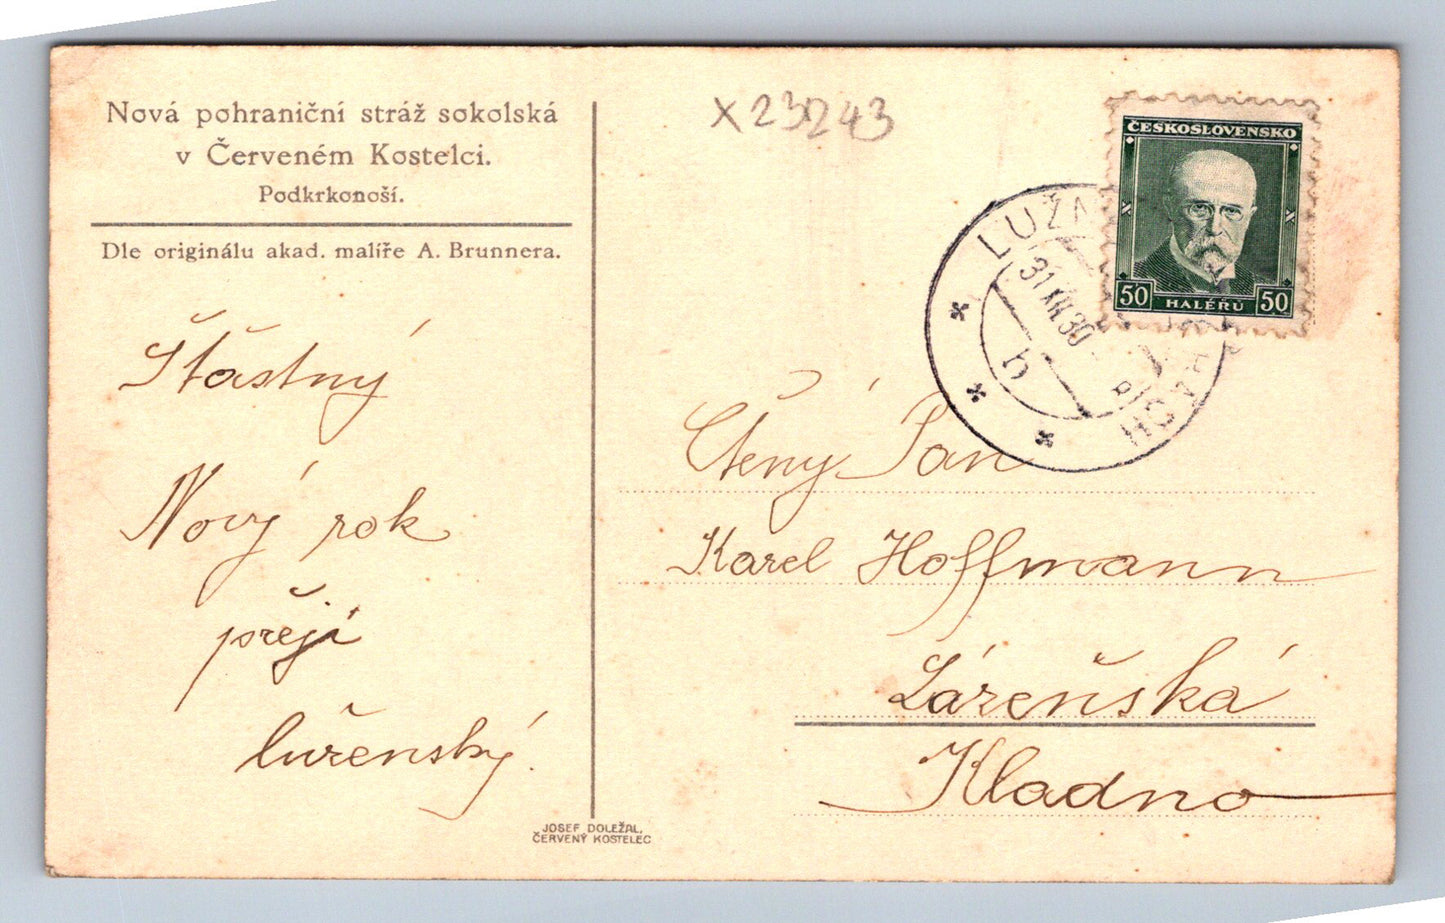 Nová pohraniční stráž sokolská
v Červeném Kostelci.
Podkrkonoší.
Dle originálu akad. malíře A. Brunnera.
Šťastný
Nový rok
přeji
JOSEF DOLEŽAL,
ČERVENÝ KOSTELEC
X23243
ČESKOSLOVENSKO
50 HALÉŘŮ 50
31 XII 30
b
Ctěný Pan
Karel Hoffmann
Kladno